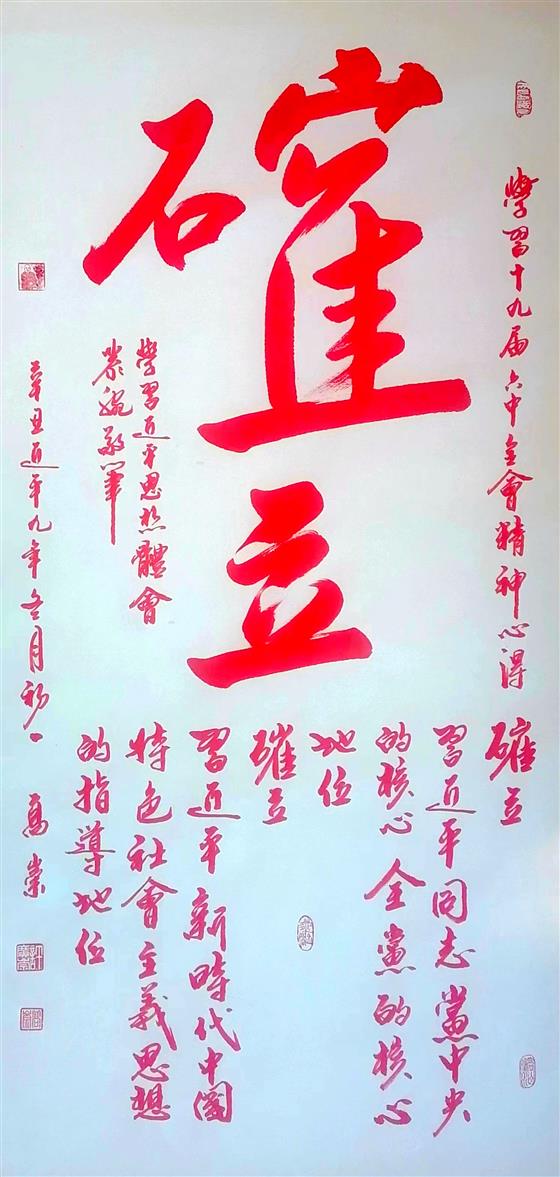 學習十九届六中全會精神心得
確立
確立
習近平同志黨中央
的核心 全黨的核心
地位
確立
習近平新時代中國
特色社會主義思想
的指導地位
學習近平思想體會
敬筆
辛丑近平九年冬月初一 崇